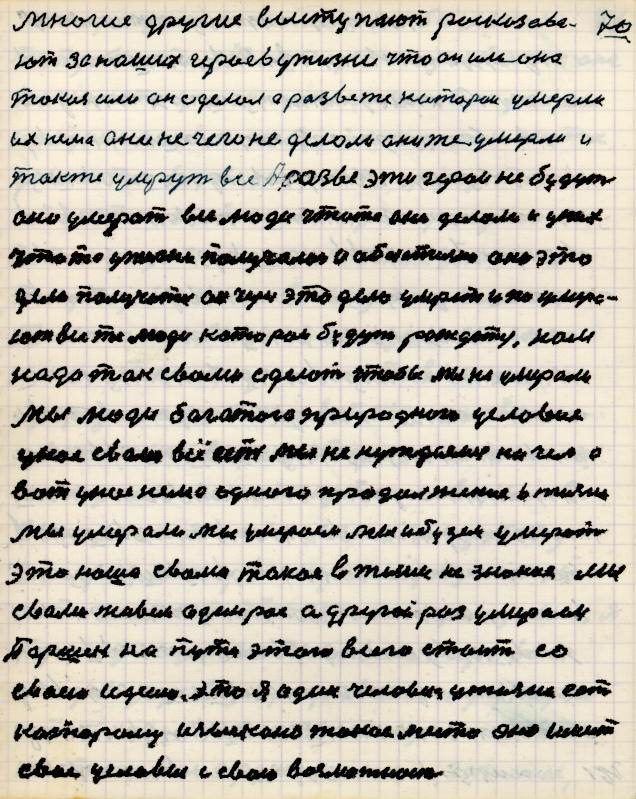 многие другие выступают росказова- 70
ют за наших героев ужизни что он или она
токоя или он сделол а развете которои умерли
их нема они не чего не делоли они же умерли и
такте умрут все А розве эти герои не будут
они умерат все люди чтото они делоли и уних
чтото ужизни получалос о абхотилос оно это
дело получите он чув это дело умрет и по умира-
ют все ти люди которои будут рождату, нам
надо так своми сделот чтобы мы не умирали
мы люди багатого природного условия
унас свами всё ест мы не нуждаемся ни чем а
вот унас нема одного продолжения в жизни
мы умерали мы умераем мы и будем умерат
это наша свами такая в жизни не знония мы
свами живем один рас а другой роз умираем
Паршек на пути этого всего стоит со
своею идеею. это я один человек ужизни ест
которому изыскано такое место оно имеит
свае условия и свою возможност